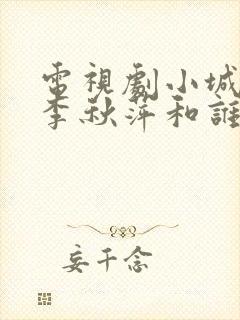 電視劇小城
李秋萍和誰
妄千念